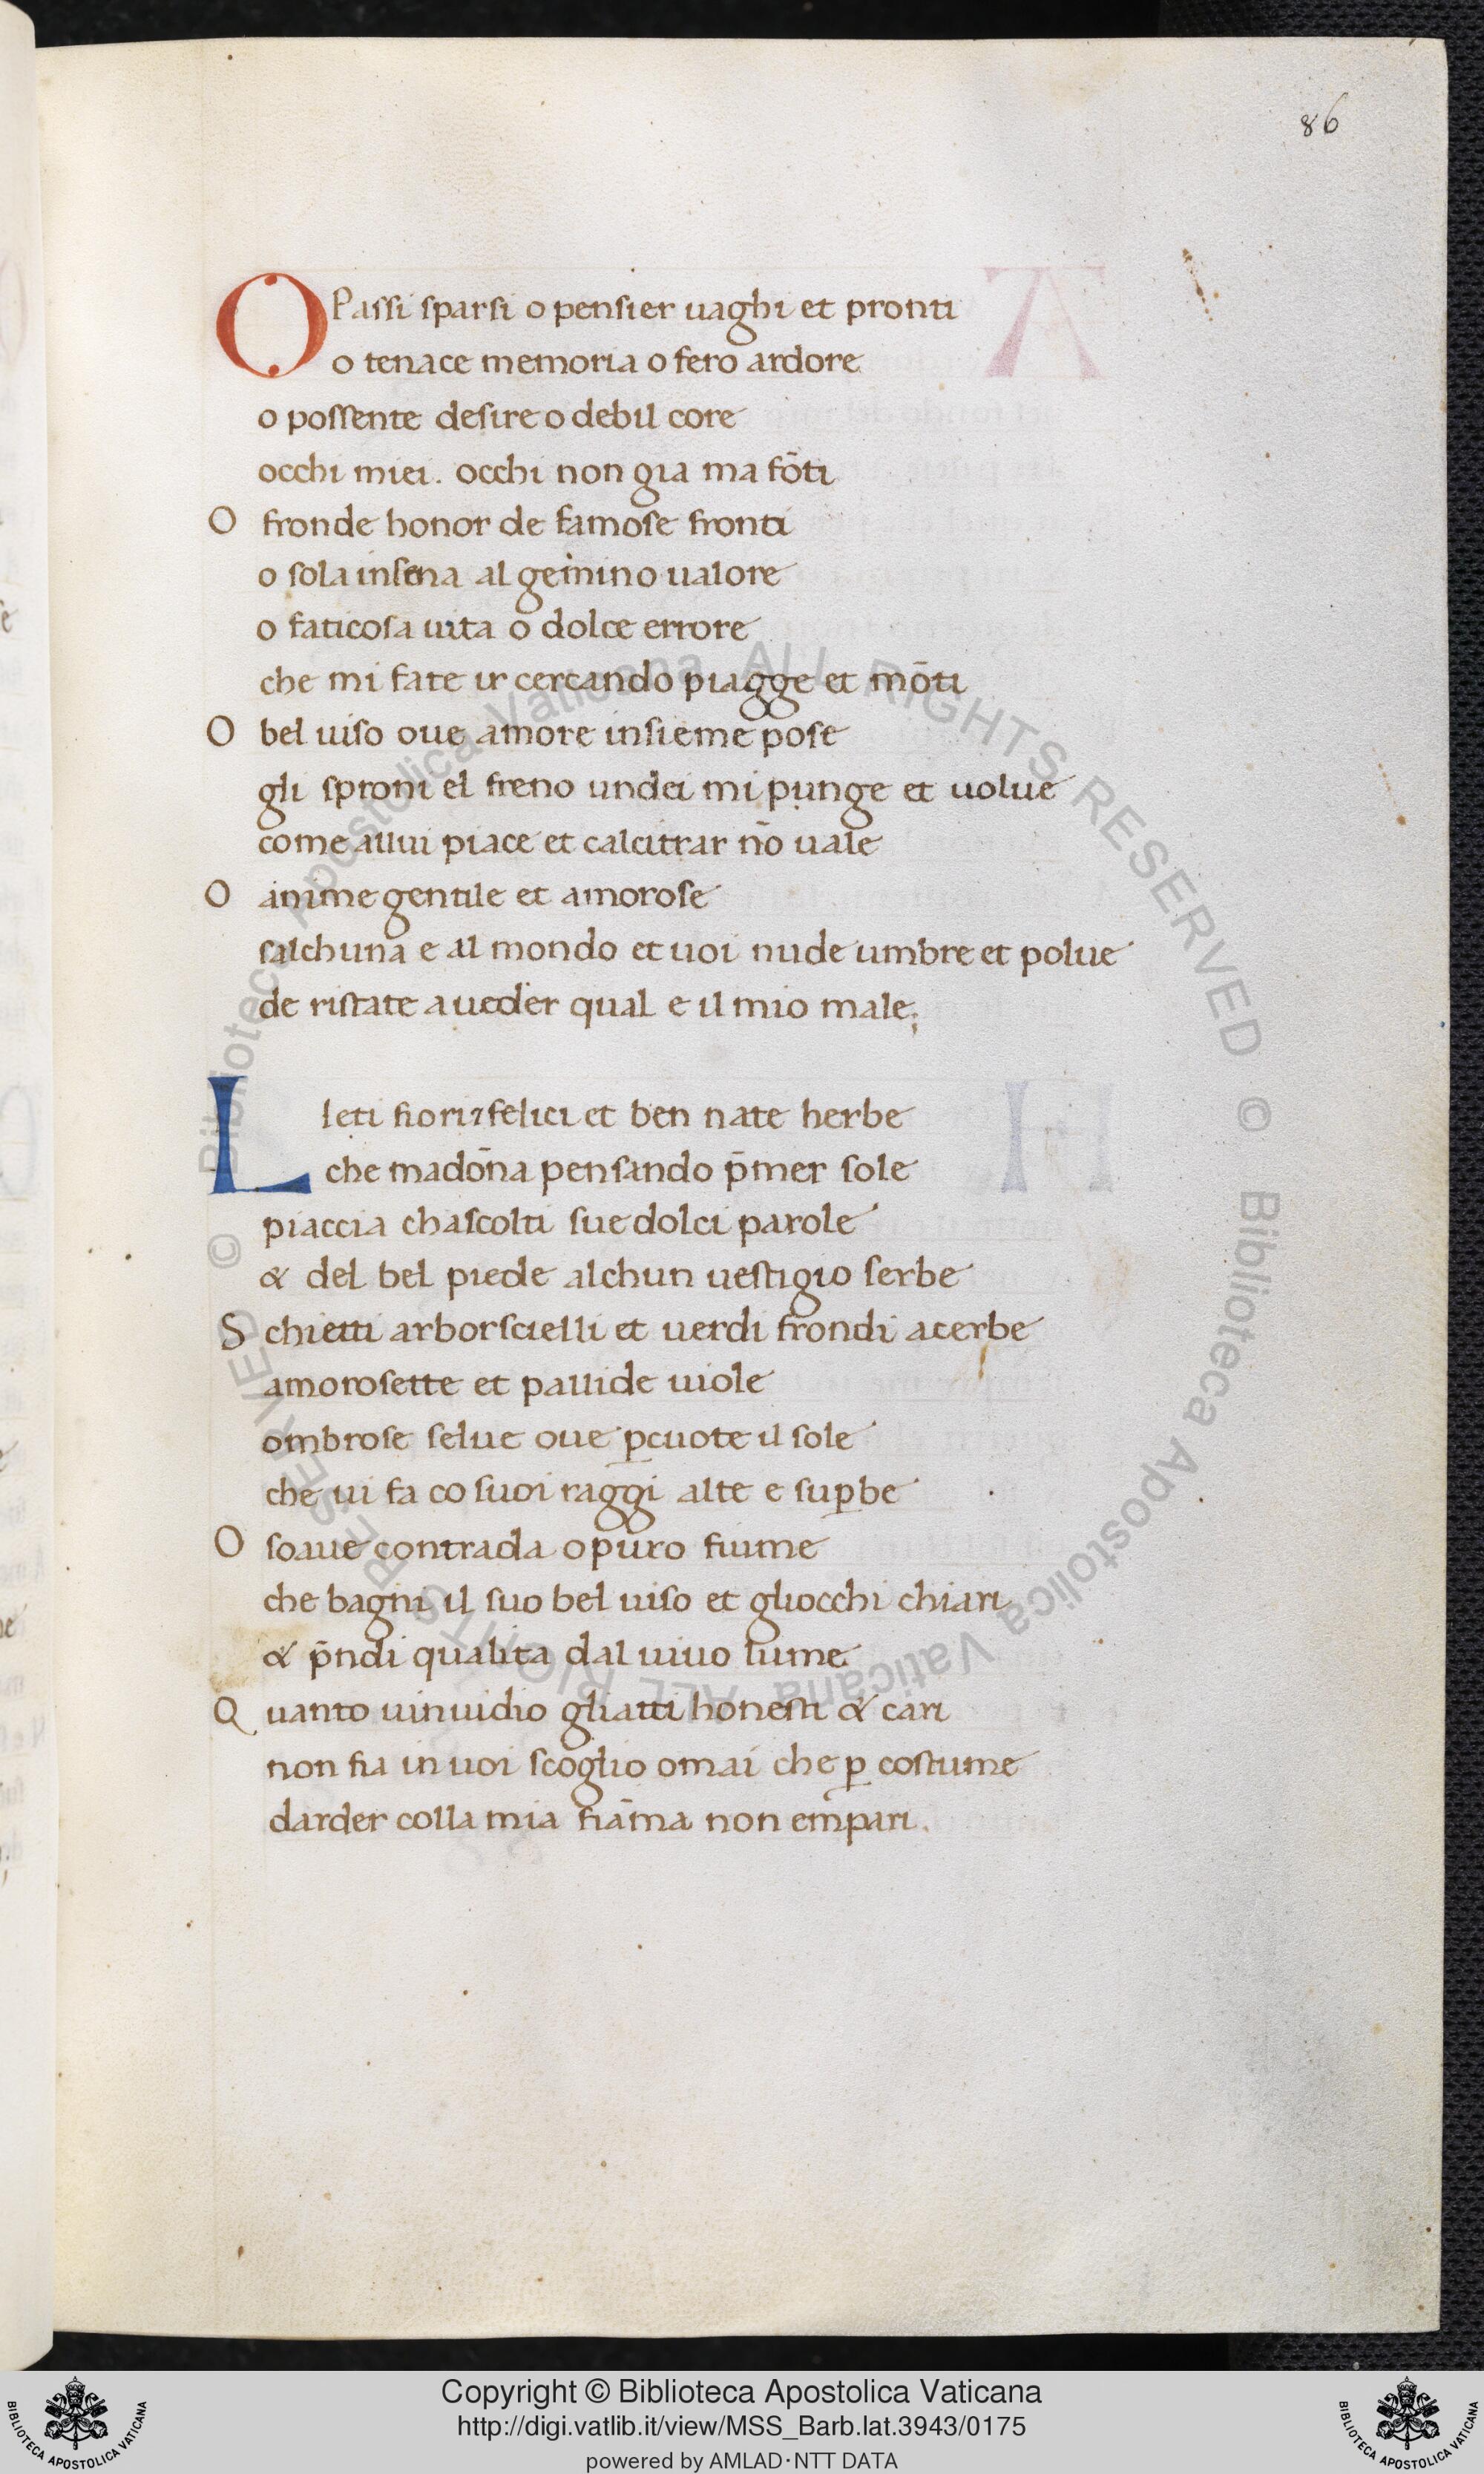 86
O Passi sparsi o pensier uaghi et pronti
o tenace memoria o fero ardore
o possente desire o debil core
occhi miei. occhi non gia ma fōti
O fronde honor de famose fronti
o sola insena al gemino ualore
o faticosa uita o dolce errore
che mi fate ir cercando piagge et mōti
O bel uiso oue amore insieme pose
gli sproni el freno undei mi punge et uolue
come allui piace et calcitrar nō uale
O anime gentile et amorose
salchuna e al mondo et uoi nude umbre et polue
de ristate a ueder qual e il mio male;
L leti fiori ⁊ felici et ben nate herbe
che madōna pensando p̄mer sole
piaccia chascolti sue dolci parole
& del bel piede alchun uestigio serbe
S chietti arborscielli et uerdi frondi acerbe
amorosette et pallide uiole
ombrose selue oue ꝑcuote il sole
che ui fa co suoi raggi alte e suꝑbe
O soaue contrada o puro fiume
che bagni il suo bel uiso et gliocchi chiari
& p̄ndi qualita dal uiuo lume
Q uanto uinuidio gliatti honesti & cari
non fia in uoi scoglio omai che ꝑ costume
darder colla mia fiām̄a non em̄pari.
© Biblioteca Apostolica Vaticana ALL RIGHTS RESERVED © Biblioteca Apostolica Vaticana ALL RIGHTS RESERVED
BIBLIOTECA APOSTOLICA VATICANA
Copyright © Biblioteca Apostolica Vaticana
http://digi.vatlib.it/view/MSS_Barb.lat.3943/0175
powered by AMLAD·NTT DATA
BIBLIOTECA APOSTOLICA VATICANA